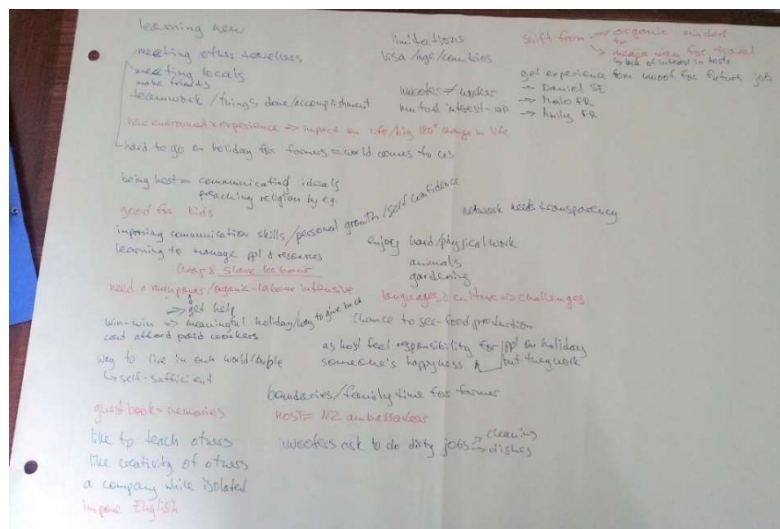 learning new
meeting other travelers
meeting locals
make friends
teamwork / things done/accomplishment
new environment & experience => impact on life/big 180° change in life
hard to go on holiday for farmers = world comes to us
being host = communicating ideals
preaching religion by e.g.
good for kids
improving communication skills/personal growth/self confidence
learning to manage ppl & resources
cheap & slave labour
need manpower/organic-labour intensive
=> get help
win-win => meaningful holiday/way to give back
cant afford paid workers
way to live in own world/
self-sufficient
guest book = memories
like to teach others
like creativity of others
a company while isolated
English
limitations
visa/age/countries
woofer ≠ worker
mutual interest
network needs transparency
enjoy hard/physical work
animals
gardening
languages & culture => challenges
chance to see food production
as host feel responsibility for ppl on holiday
someone's happyness but they work
boundaries/family time for farmer
host = NZ ambassador
wwoofers risk to do dirty jobs
cleaning
dishes
shift from organic minded
to
way for travel
lack of interest in hosts
get experience from wwoof for future job
Daniel SE
FR
FR